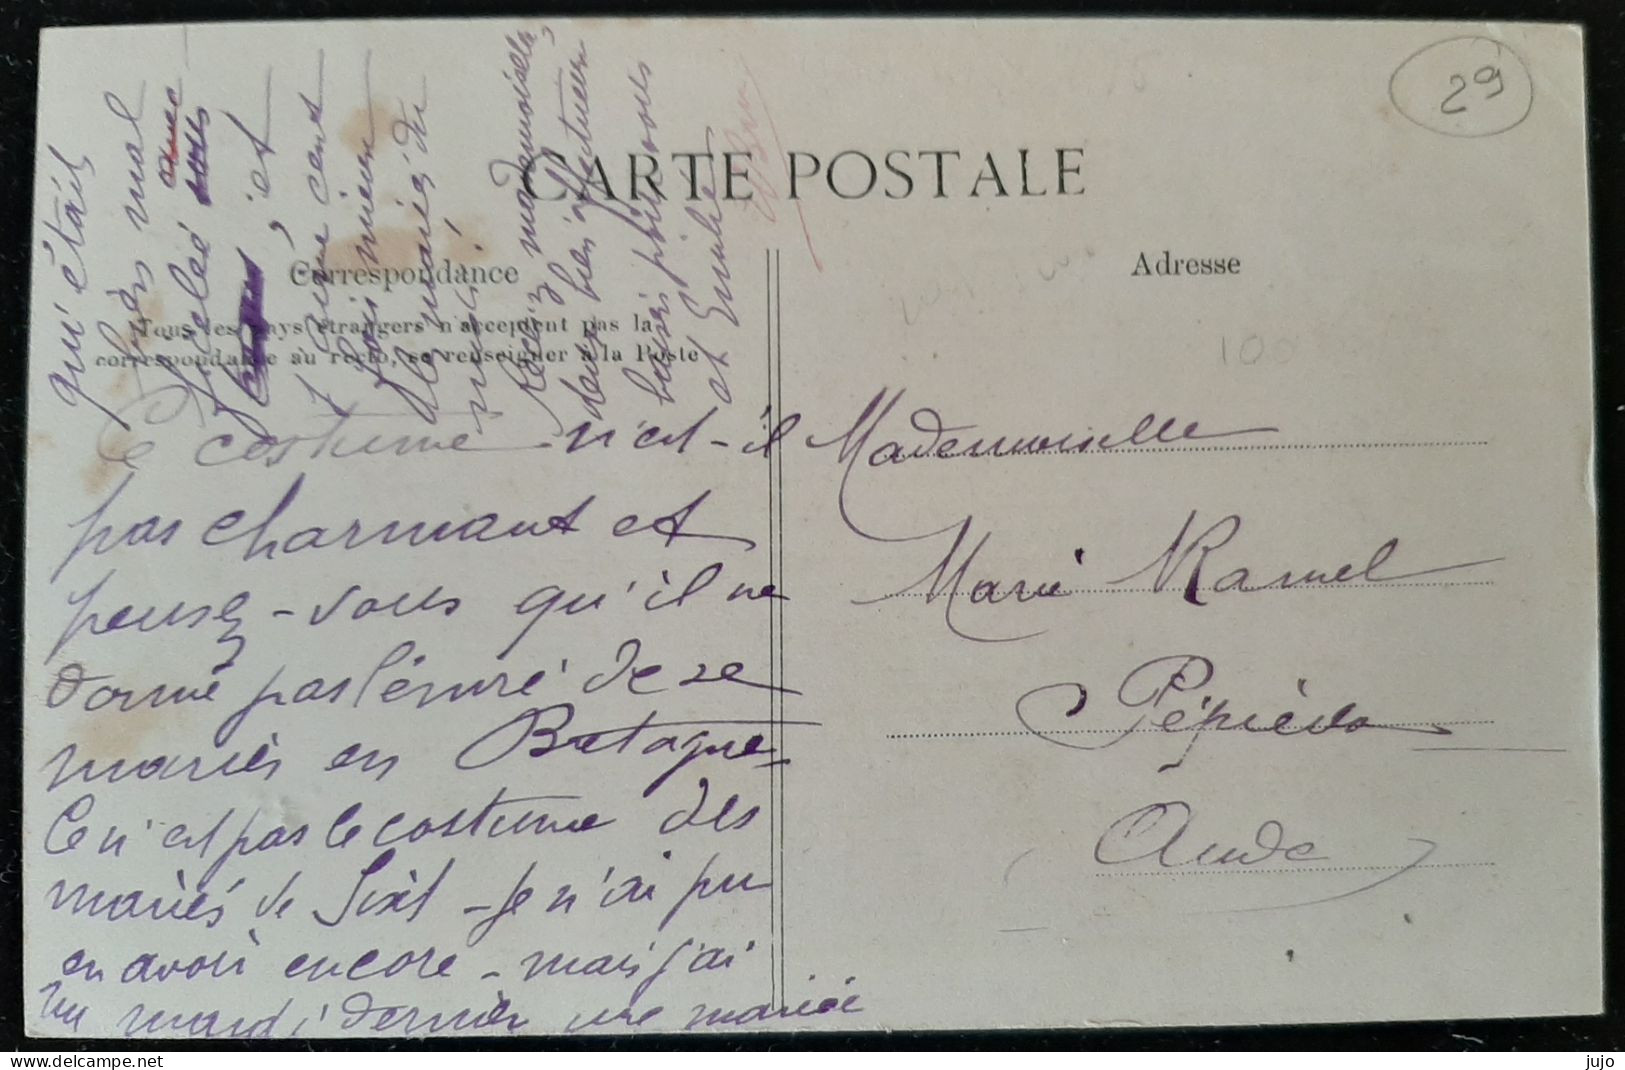 29
CARTE POSTALE
Correspondance
Adresse
Tous les pays étrangers n'acceptent pas la
correspondance au recto, se renseigner à la Poste
100
Ce costume n'est-il
pas charmant et
pensez-vous qu'il ne
donne pas l'envie de se
marier en Bretagne
Ce n'est pas le costume des
mariés de Sixt - je n'ai pu
en avoir encore - mais j'ai
vu mardi dernier une mariée
qu'était
très mal
avec
et
cent
fois mieux
les mariés du
midi.
Recevez mademoiselle,
deux bien affectueux
baisers pour vous
et
Mademoiselle
Marie Ramel
Pépieux
Aude
jujo